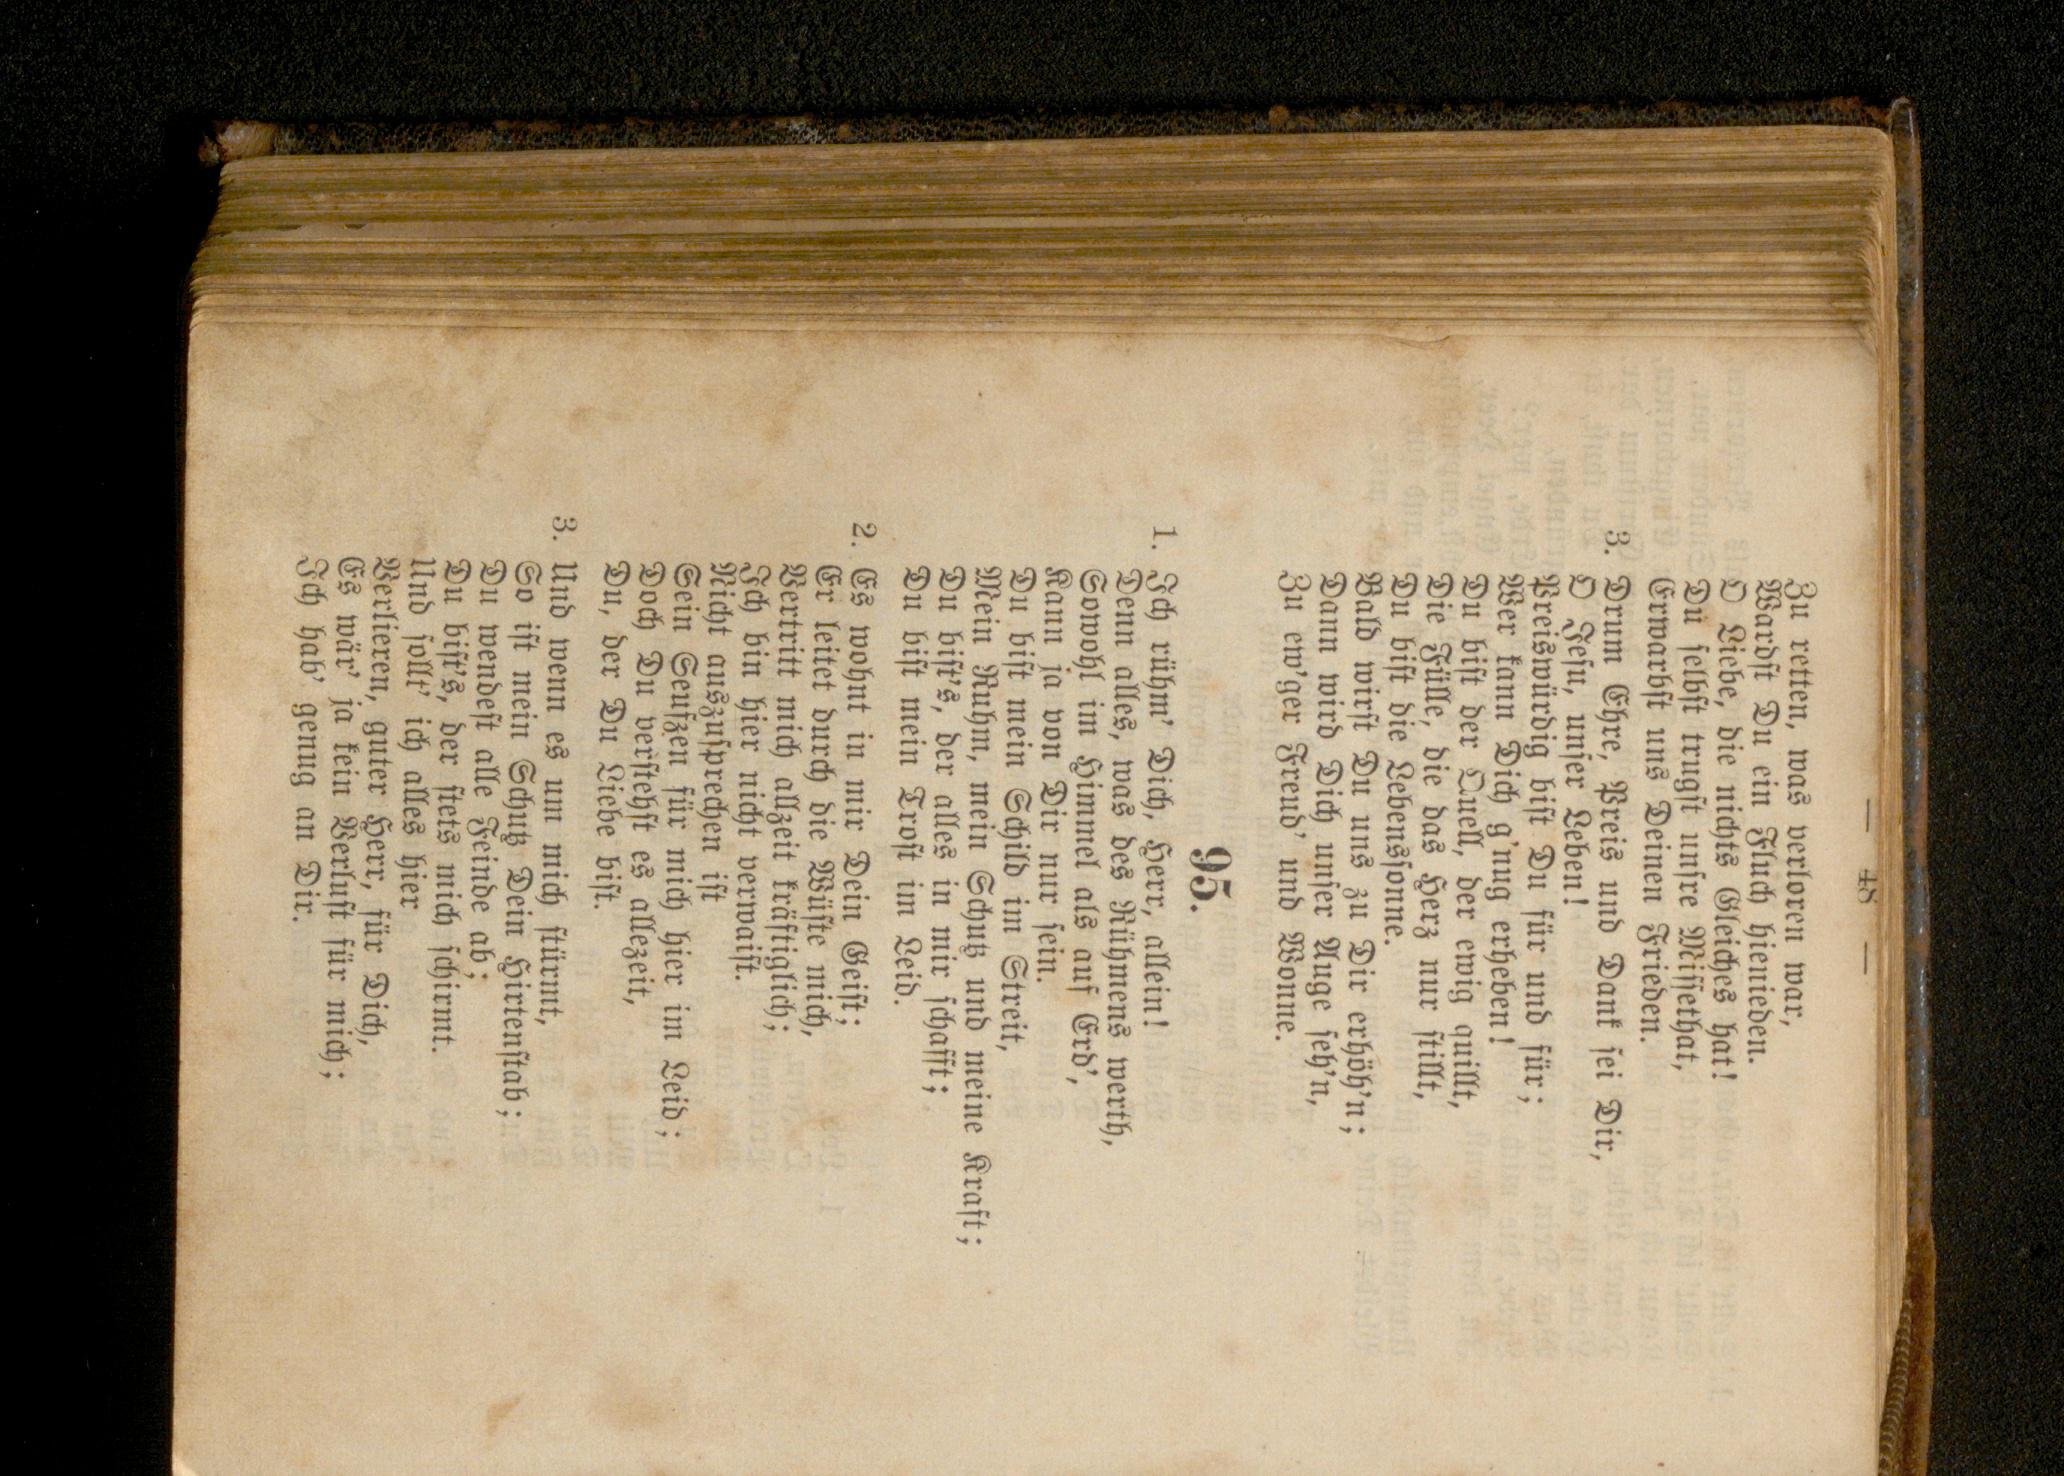 — 48 —
Zu retten, was verloren war,
Wardſt Du ein Fluch hienieden.
O Liebe, die nichts Gleiches hat!
Du ſelbſt trugſt unſre Miſſethat,
Erwarbſt uns Deinen Frieden.
3. Drum Ehre, Preis und Dank ſei Dir,
O Jeſu, unſer Leben!
Preiswürdig biſt Du für und für;
Wer kann Dich g'nug erheben!
Du biſt der Quell, der ewig quillt,
Die Fülle, die das Herz nur ſtillt,
Du biſt die Lebensſonne.
Bald wirſt Du uns zu Dir erhöh'n;
Dann wird Dich unſer Auge ſeh'n,
Zu ew'ger Freud' und Wonne.
95.
1. Ich rühm' Dich, Herr, allein!
Denn alles, was des Rühmens werth,
Sowohl im Himmel als auf Erd',
Kann ja von Dir nur ſein.
Du biſt mein Schild im Streit,
Mein Ruhm, mein Schutz und meine Kraft;
Du biſt's, der alles in mir ſchafft;
Du biſt mein Troſt im Leid.
2. Es wohnt in mir Dein Geiſt;
Er leitet durch die Wüſte mich,
Vertritt mich allzeit kräftiglich;
Ich bin hier nicht verwaiſt.
Nicht auszuſprechen iſt
Sein Seufzen für mich hier im Leid;
Doch Du verſtehſt es allezeit,
Du, der Du Liebe biſt.
3. Und wenn es um mich ſtürmt,
So iſt mein Schutz Dein Hirtenſtab;
Du wendeſt alle Feinde ab;
Du biſt's, der ſtets mich ſchirmt.
Und ſollt' ich alles hier
Verlieren, guter Herr, für Dich,
Es wär' ja kein Verluſt für mich;
Ich hab' genug an Dir.